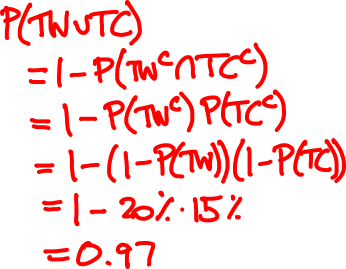 P(TW∪TC)
= 1 - P(TWᶜ∩TCᶜ)
= 1 - P(TWᶜ) P(TCᶜ)
= 1 - (1 - P(TW))(1 - P(TC))
= 1 - 20% · 15%
= 0.97